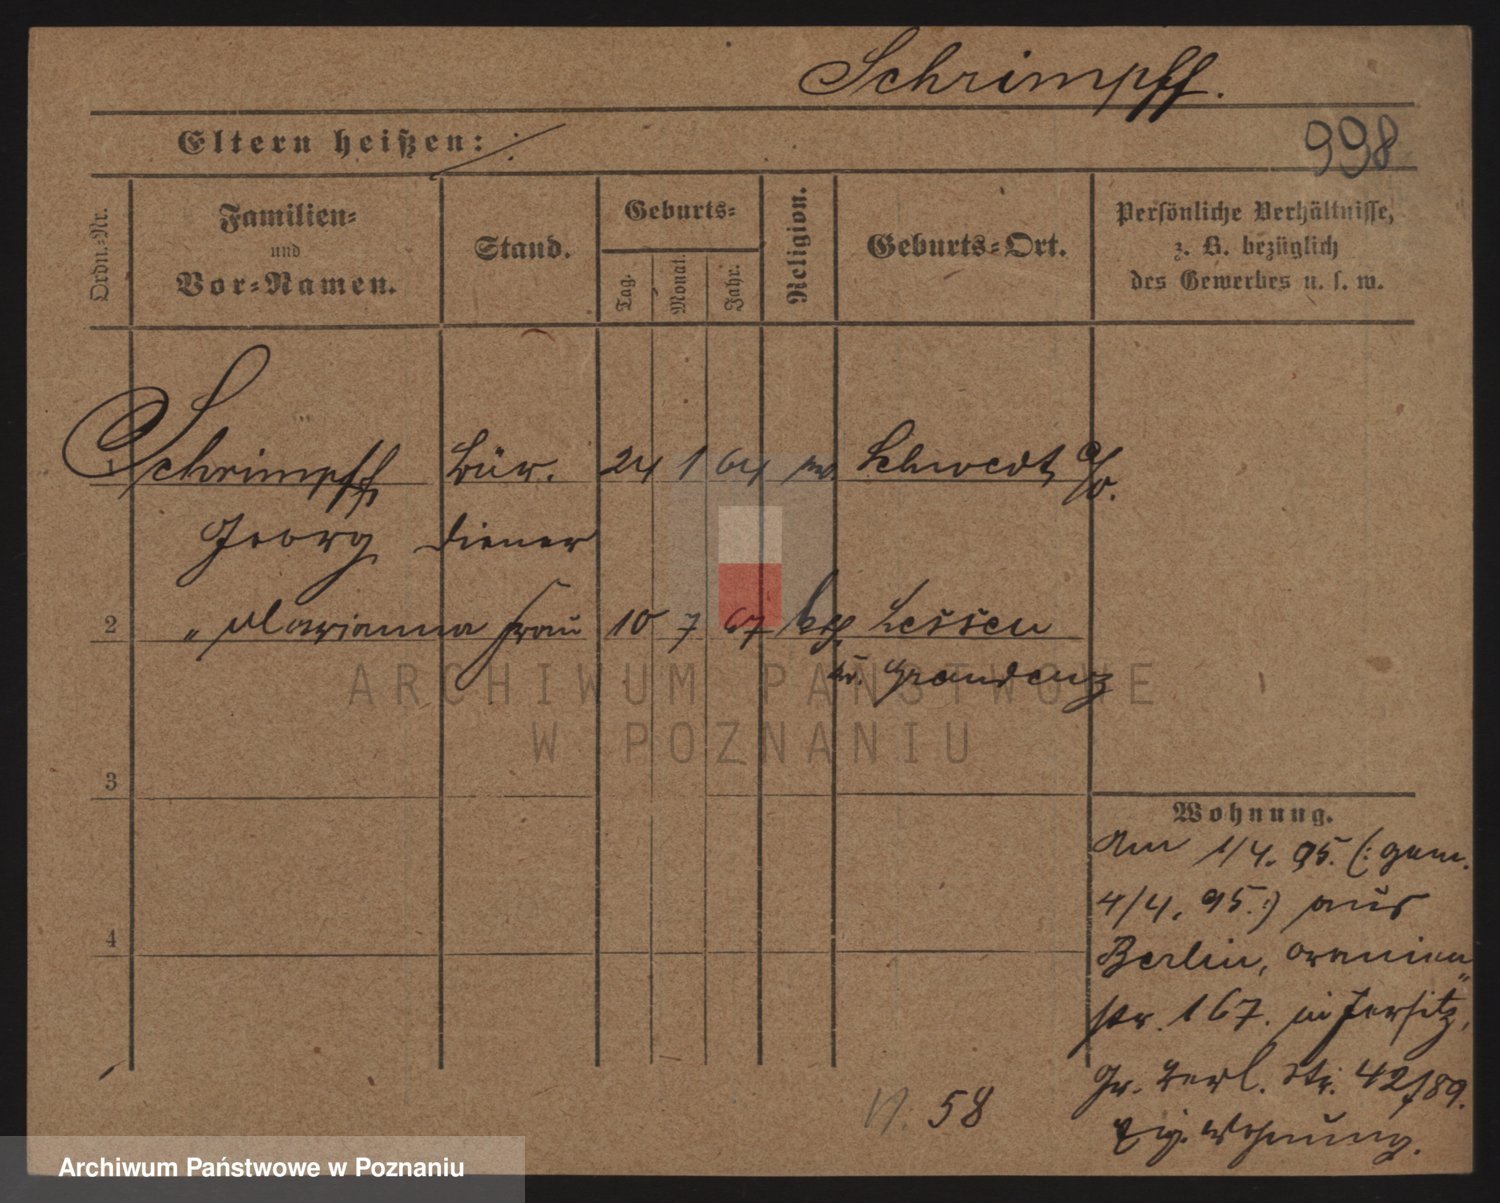 Schrimpff.
Eltern heißen: ./.
998
Ordn.-Nr.
Familien-
und
Vor-Namen.
Stand.
Geburts-
Tag.
Monat.
Jahr.
Religion.
Geburts-Ort.
Persönliche Verhältnisse,
z. B. bezüglich
des Gewerbes u. s. w.
1 Schrimpff Bür. 24 1 64 Schwedt a/O.
Georg diener
2 " Marianna Frau 10 7 67 kth. Lessen
Kr. Graudenz
ARCHIWUM PAŃSTWOWE
W POZNANIU
3
4
Wohnung.
Am 1/4. 95. (: gem.
4/4. 95.:) aus
Berlin, Oranien„
str. 167. in Jersitz,
Gr. Berl. Str. 42/89.
Eig. Wohnung.
N. 58
Archiwum Państwowe w Poznaniu